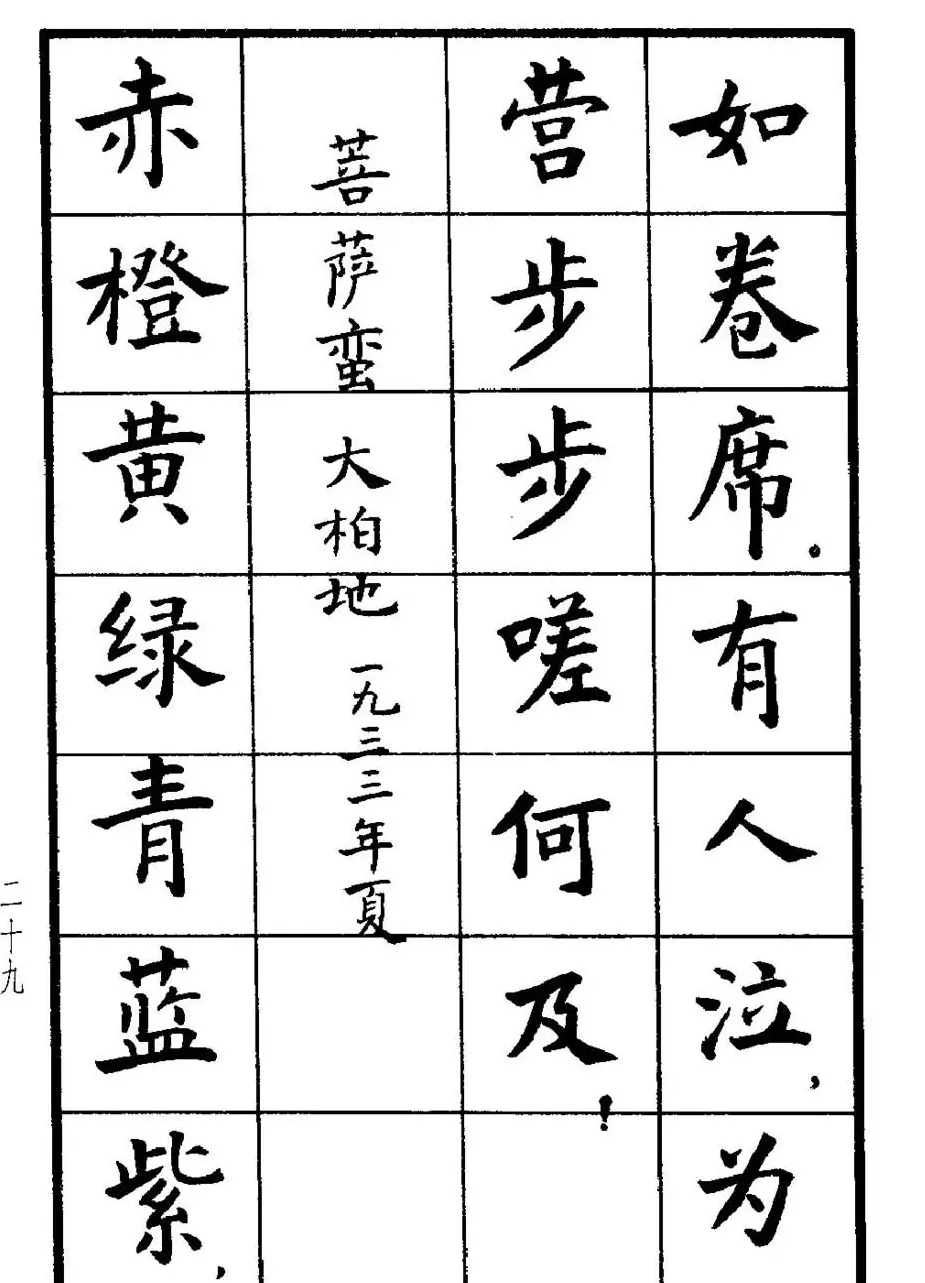 如卷席。有人泣，为
营步步嗟何及！
菩萨蛮 大柏地 一九三三年夏
赤橙黄绿青蓝紫，
二十九